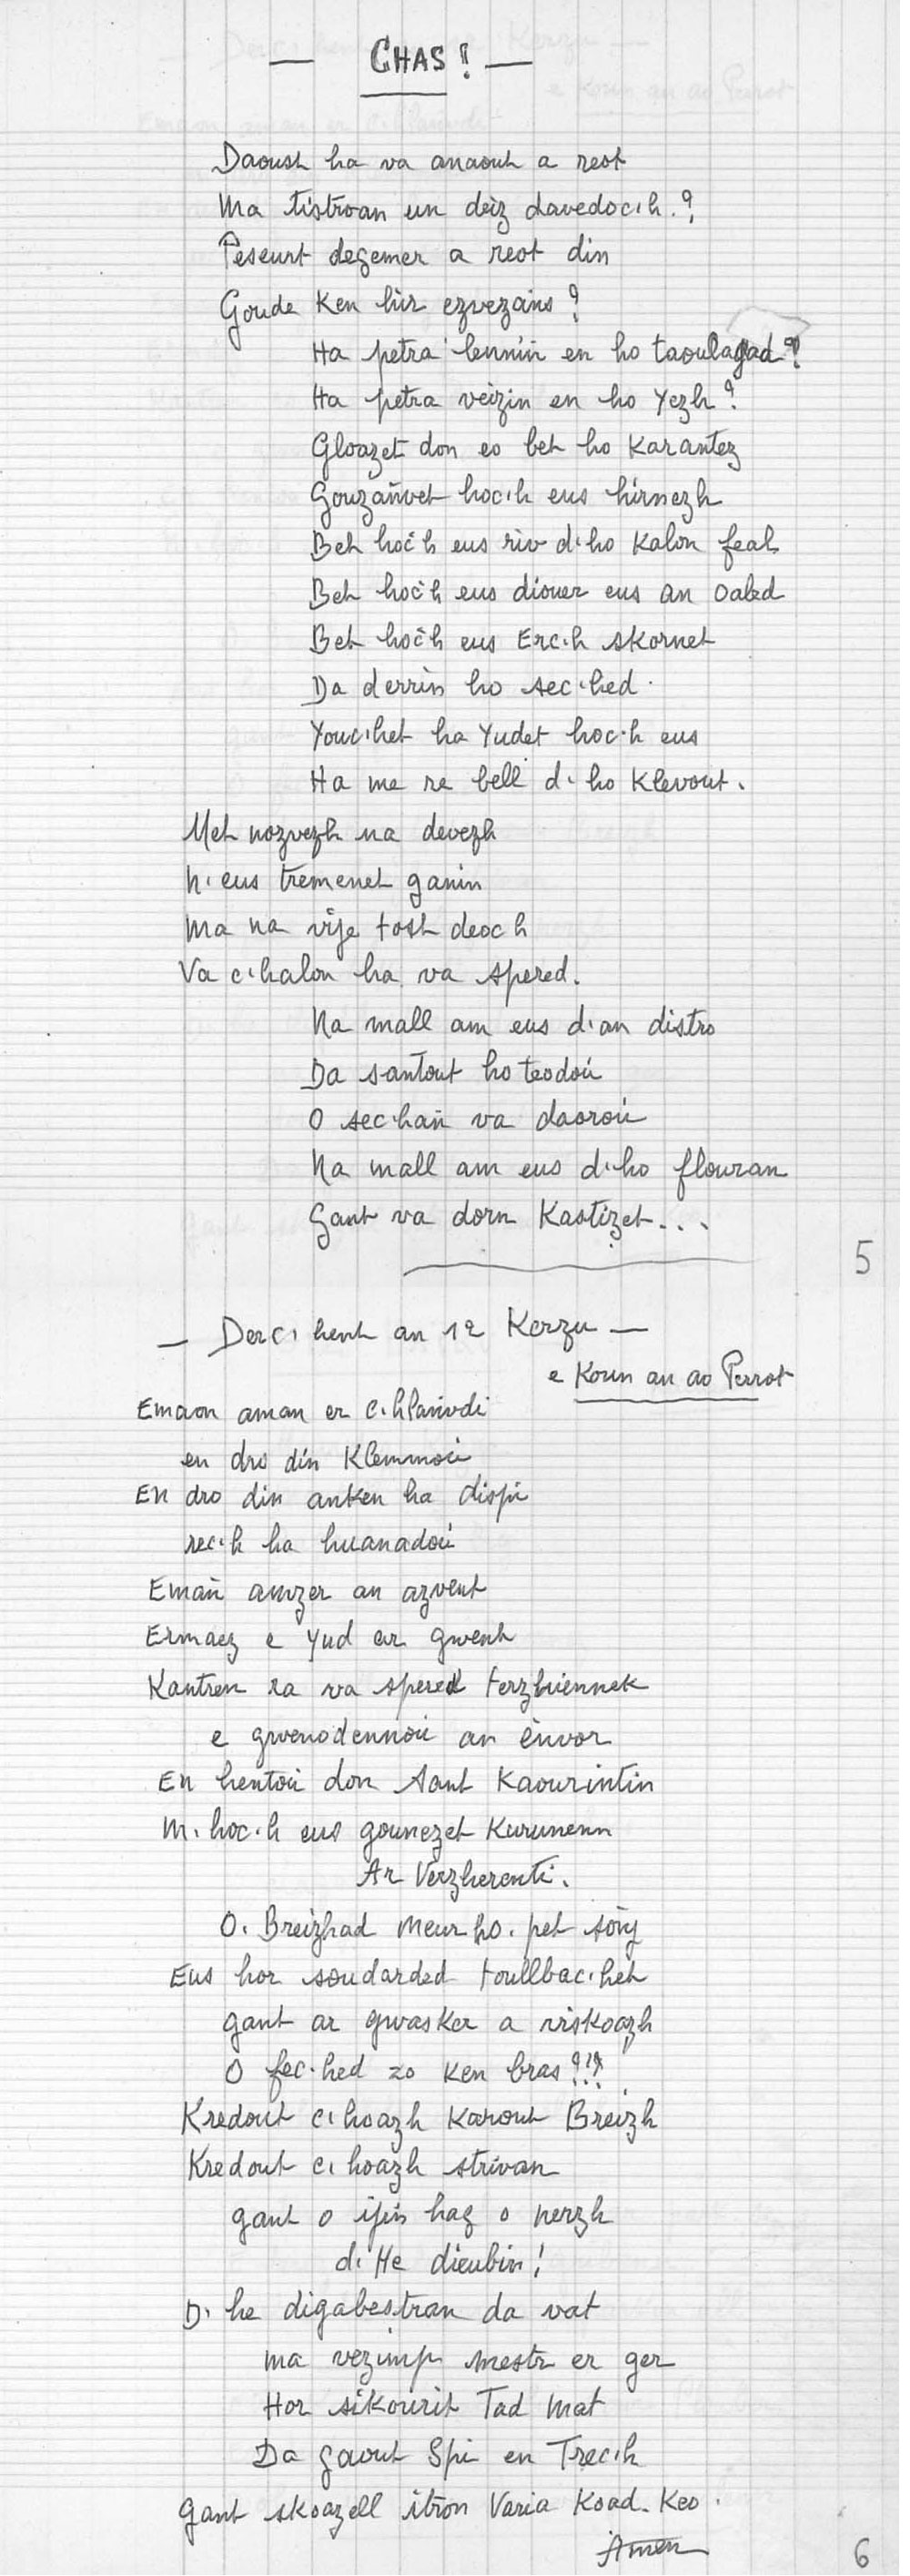 — CHAS! —
Daoust ha va anaout a reot
Ma tistroan un deiz davedoc'h.?
Peseurt degemer a reot din
Goude ken hir ezvezañs?
Ha petra lennin en ho taoulagad?
Ha petra veizin en ho Yezh?
Gloazet don eo bet ho Karantez
Gouzañvet hoc'h eus hirnezh
Bet hoc'h eus riv d'ho Kalon feal
Bet hoc'h eus diouer eus an Oaled
Bet hoc'h eus Erc'h skornet
Da derriñ ho sec'hed.
Youc'het ha Yudet hoc'h eus
Ha me re bell d'ho Klevout.
Met nozvezh na devezh
N'eus tremenet ganin
Ma na vije tost deoc'h
Va c'halon ha va spered.
Na mall am eus d'an distro
Da santout ho teodoù
O sec'hañ va daoroù
Na mall am eus d'ho flouran
Gant va dorn Kastizet...
5
— Derc'hent an 12 Kerzu —
e Koun an ao Perrot
Emaon aman er c'hlañvdi
en dro din Klemmoù
En dro din anken ha dispi
rec'h ha huanadoù
Emañ amzer an azvent
Ermaez e Yud ar gwent
Kantren ra va spered terzhiennek
e gwenodennoù an envor
En hentoù don Sant Kaourintin
M'hoc'h eus gounezet Kurunenn
Ar Verzherenti.
O. Breizhad Meur ho. pet soñj
Eus hor soudarded toullbac'het
gant ar gwasker a viskoazh
O fec'hed zo ken bras?!?
Kredout c'hoazh Karout Breizh
Kredout c'hoazh strivan
gant o ijin hag o nerzh
d'He dieubin!
D'he digabestran da vat
ma vezimp mestr er ger
Hor sikourit Tad Mat
Da gaout Spi en Trec'h
Gant skoazell itron Varia Koad-Keo.
Amen
6